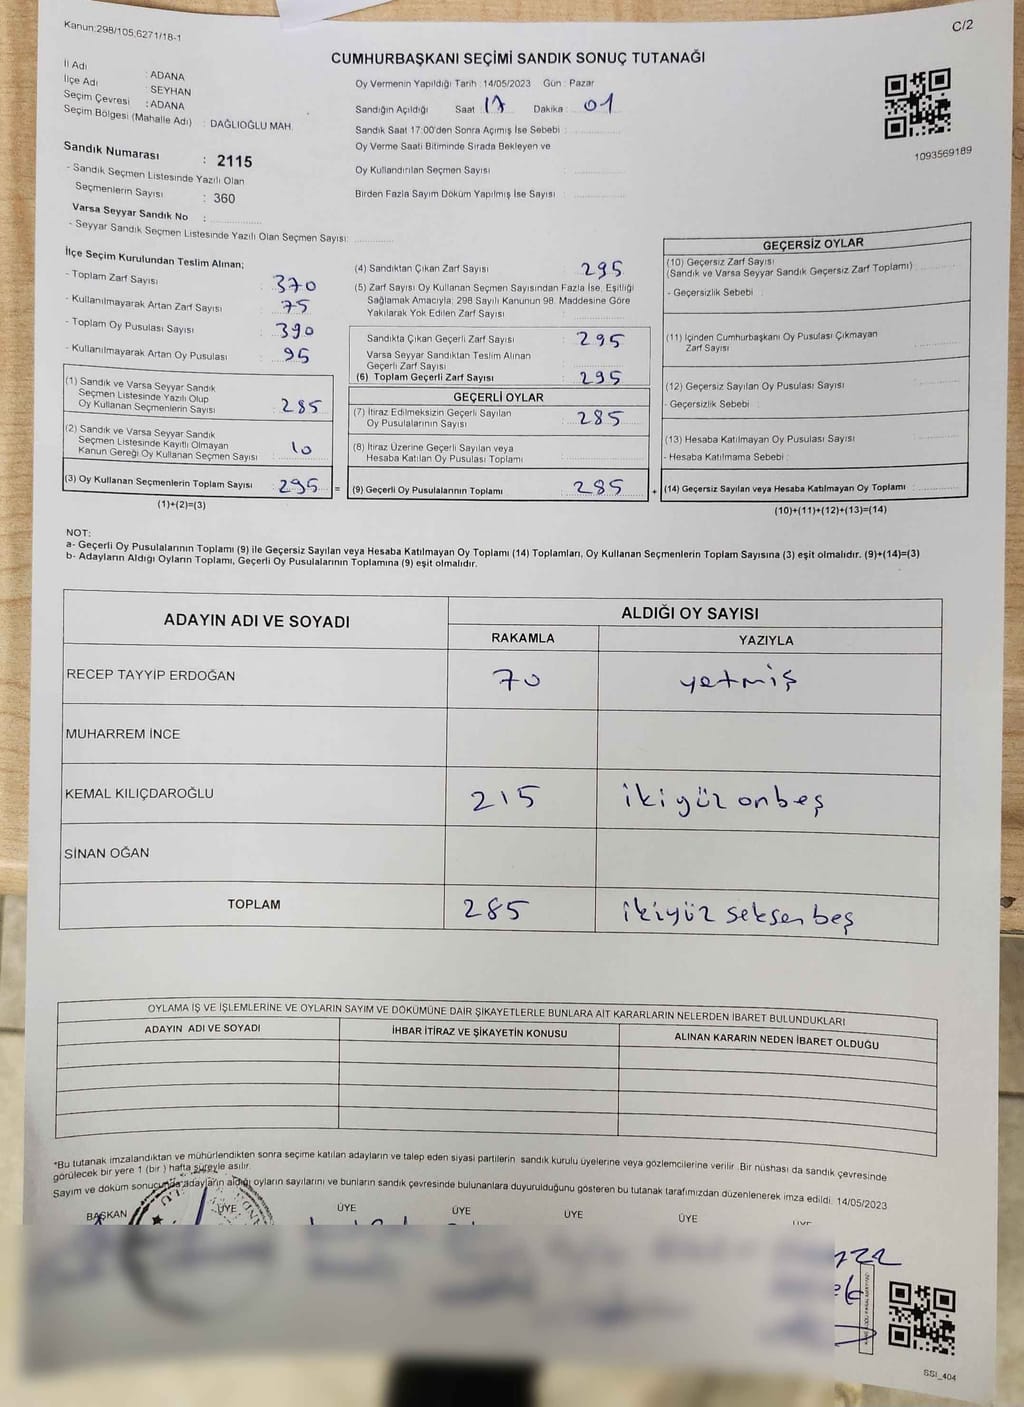 Kanun:298/105,6271/18-1
C/2
CUMHURBAŞKANI SEÇİMİ SANDIK SONUÇ TUTANAĞI
İl Adı : ADANA
İlçe Adı : SEYHAN
Seçim Çevresi : ADANA
Seçim Bölgesi (Mahalle Adı) : DAĞLIOĞLU MAH.
Sandık Numarası : 2115
- Sandık Seçmen Listesinde Yazılı Olan
Seçmenlerin Sayısı : 360
Varsa Seyyar Sandık No :
- Seyyar Sandık Seçmen Listesinde Yazılı Olan Seçmen Sayısı:
Oy Vermenin Yapıldığı Tarih : 14/05/2023 Gün : Pazar
Sandığın Açıldığı Saat : 17 Dakika : 01
Sandık Saat 17:00'den Sonra Açımış İse Sebebi :
Oy Verme Saati Bitiminde Sırada Bekleyen ve
Oy Kullandırılan Seçmen Sayısı :
Birden Fazla Sayım Döküm Yapılmış İse Sayısı :
1093569189
İlçe Seçim Kurulundan Teslim Alınan;
- Toplam Zarf Sayısı : 370
- Kullanılmayarak Artan Zarf Sayısı : 75
- Toplam Oy Pusulası Sayısı : 390
- Kullanılmayarak Artan Oy Pusulası : 95
(1) Sandık ve Varsa Seyyar Sandık
Seçmen Listesinde Yazılı Olup
Oy Kullanan Seçmenlerin Sayısı : 285
(2) Sandık ve Varsa Seyyar Sandık
Seçmen Listesinde Kayıtlı Olmayan
Kanun Gereği Oy Kullanan Seçmen Sayısı : 10
(3) Oy Kullanan Seçmenlerin Toplam Sayısı : 295 =
(1)+(2)=(3)
(4) Sandıktan Çıkan Zarf Sayısı : 295
(5) Zarf Sayısı Oy Kullanan Seçmen Sayısından Fazla İse, Eşitliği
Sağlamak Amacıyla; 298 Sayılı Kanunun 98. Maddesine Göre
Yakılarak Yok Edilen Zarf Sayısı :
Sandıkta Çıkan Geçerli Zarf Sayısı : 295
Varsa Seyyar Sandıktan Teslim Alınan
Geçerli Zarf Sayısı :
(6) Toplam Geçerli Zarf Sayısı : 295
GEÇERLİ OYLAR
(7) İtiraz Edilmeksizin Geçerli Sayılan
Oy Pusulalarının Sayısı : 285
(8) İtiraz Üzerine Geçerli Sayılan veya
Hesaba Katılan Oy Pusulası Toplamı :
(9) Geçerli Oy Pusulalarının Toplamı : 285 +
GEÇERSİZ OYLAR
(10) Geçersiz Zarf Sayısı
(Sandık ve Varsa Seyyar Sandık Geçersiz Zarf Toplamı) :
- Geçersizlik Sebebi :
(11) İçinden Cumhurbaşkanı Oy Pusulası Çıkmayan
Zarf Sayısı :
(12) Geçersiz Sayılan Oy Pusulası Sayısı :
- Geçersizlik Sebebi :
(13) Hesaba Katılmayan Oy Pusulası Sayısı :
- Hesaba Katılmama Sebebi :
(14) Geçersiz Sayılan veya Hesaba Katılmayan Oy Toplamı :
(10)+(11)+(12)+(13)=(14)
NOT:
a- Geçerli Oy Pusulalarının Toplamı (9) ile Geçersiz Sayılan veya Hesaba Katılmayan Oy Toplamı (14) Toplamları, Oy Kullanan Seçmenlerin Toplam Sayısına (3) eşit olmalıdır. (9)+(14)=(3)
b- Adayların Aldığı Oyların Toplamı, Geçerli Oy Pusulalarının Toplamına (9) eşit olmalıdır.
ADAYIN ADI VE SOYADI
ALDIĞI OY SAYISI
RAKAMLA YAZIYLA
RECEP TAYYİP ERDOĞAN 70 yetmiş
MUHARREM İNCE
KEMAL KILIÇDAROĞLU 215 ikiyüz onbeş
SİNAN OĞAN
TOPLAM 285 ikiyüz seksen beş
OYLAMA İŞ VE İŞLEMLERİNE VE OYLARIN SAYIM VE DÖKÜMÜNE DAİR ŞİKAYETLERLE BUNLARA AİT KARARLARIN NELERDEN İBARET BULUNDUKLARI
ADAYIN ADI VE SOYADI İHBAR İTİRAZ VE ŞİKAYETİN KONUSU ALINAN KARARIN NEDEN İBARET OLDUĞU
*Bu tutanak imzalandıktan ve mühürlendikten sonra seçime katılan adayların ve talep eden siyasi partilerin sandık kurulu üyelerine veya gözlemcilerine verilir. Bir nüshası da sandık çevresinde
görülecek bir yere 1 (bir ) hafta süreyle asılır.
Sayım ve döküm sonucunda adayların aldığı oyların sayılarını ve bunların sandık çevresinde bulunanlara duyurulduğunu gösteren bu tutanak tarafımızdan düzenlenerek imza edildi. 14/05/2023
BAŞKAN ÜYE ÜYE ÜYE ÜYE ÜYE
SSI_404